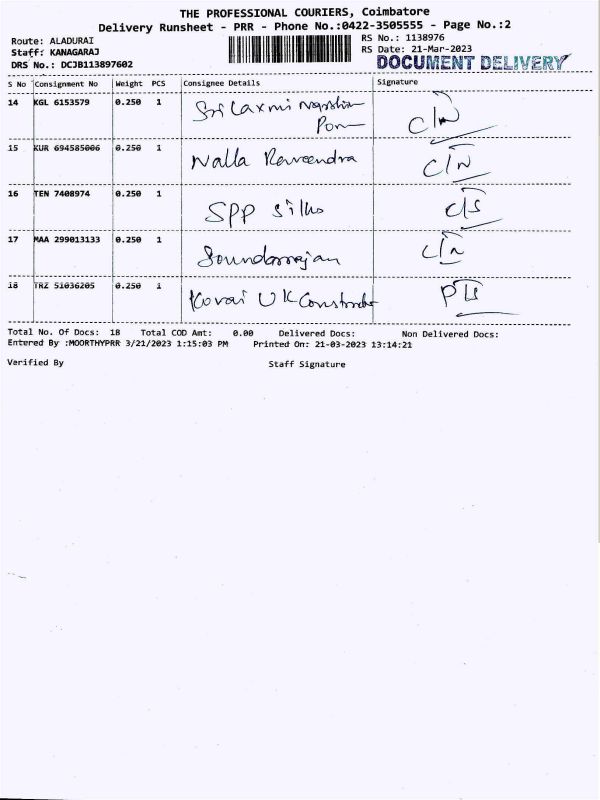 THE PROFESSIONAL COURIERS, Coimbatore
Delivery Runsheet - PRR - Phone No.:0422-3505555 - Page No.:2
Route: ALADURAI
Staff: KANAGARAJ
DRS No.: DCJB113897602
RS No.: 1138976
RS Date: 21-Mar-2023
DOCUMENT DELIVERY
S No Consignment No Weight PCS Consignee Details Signature
14 KGL 6153579 0.250 1 Sri Laxmi
15 KUR 694585006 0.250 1 Nalla Raveendra
16 TEN 7408974 0.250 1 SPP Silks C/S
17 MAA 299013133 0.250 1 Soundarrajan
18 TRZ 51036205 0.250 1 Kovai UK
Total No. Of Docs: 18 Total COD Amt: 0.00 Delivered Docs: Non Delivered Docs:
Entered By :MOORTHYPRR 3/21/2023 1:15:03 PM Printed On: 21-03-2023 13:14:21
Verified By Staff Signature